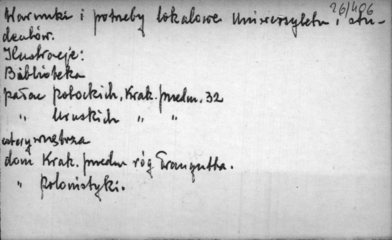 26/406
Warunki i potrzeby lokalowe Uniwersytetu i stu-
dentów.
Ilustracje:
Biblioteka
pałac Potockich, Krak. przedm. 32
" Uruskich " "
cztery wnętrza
dom Krak. przedm róg Traugutta.
" polonistyki.